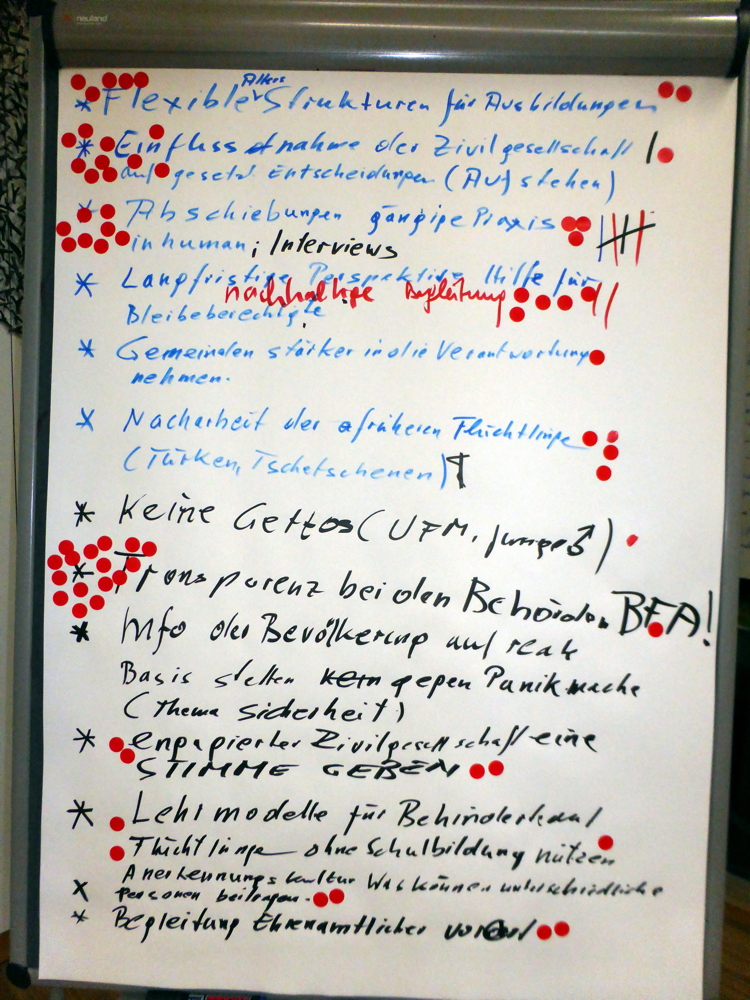 neuland
Alters
* Flexible Strukturen für Ausbildungen
* Einflussnahme der Zivilgesellschaft
auf gesetzl Entscheidungen (Aufstehen)
* Abschiebungen gängige Praxis
inhuman; Interviews
* Langfristige Perspektive Hilfe für
nachhaltige Begleitung
Bleibeberechtigte
* Gemeinden stärker in die Verantwortung
nehmen.
* Nacharbeit der früheren Flüchtlinge
(Türken, Tschetschenen)
* Keine Gettos (UFM, junge ♂)
* Transparenz bei den Behörden BFA!
* Info der Bevölkerung auf reale
Basis stellen gegen Panikmache
(Thema Sicherheit)
* engagierter Zivilgesellschaft eine
STIMME GEBEN
* Lehrmodelle für Behinderte auf
Flüchtlinge ohne Schulbildung nützen
* Anerkennungskultur Was können unterschiedliche
Personen beitragen.
* Begleitung Ehrenamtlicher vor Ort